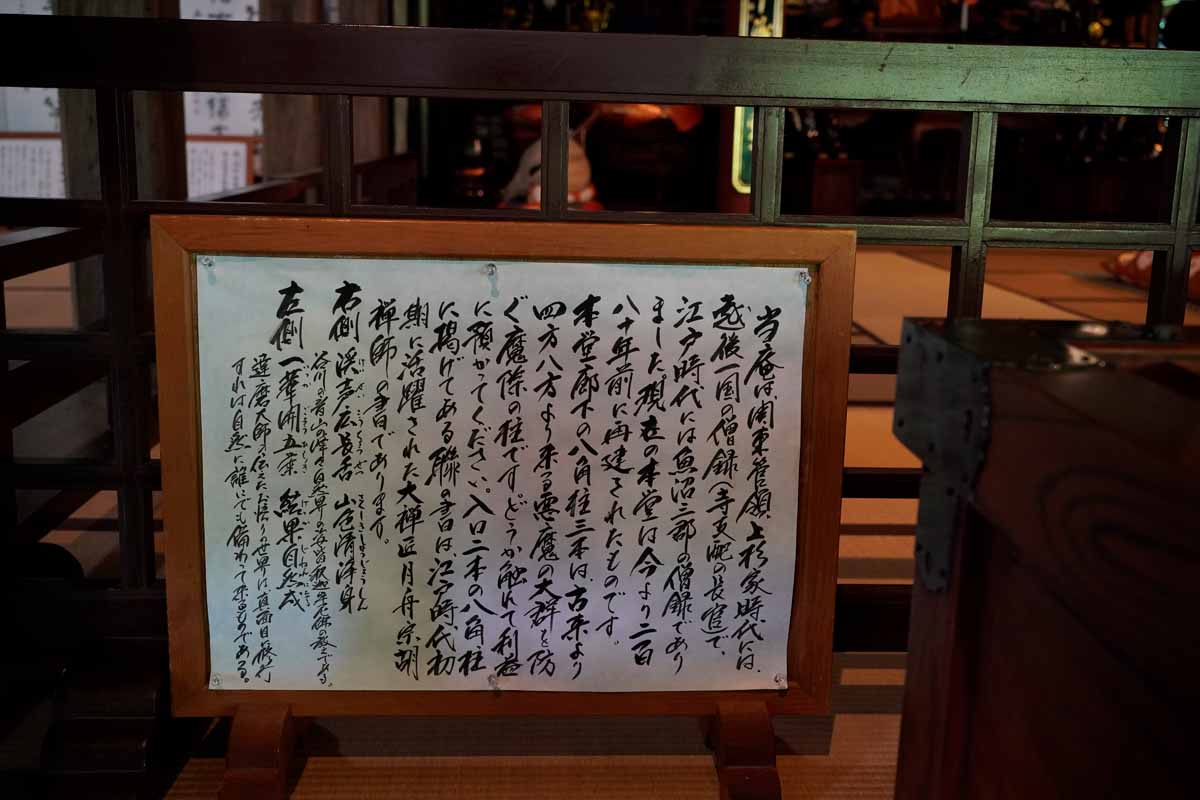 当庵は、関東管領、上杉家時代には、
越後一国の僧録(寺支配の長官)で、
江戸時代には魚沼三郡の僧録であり
ました。現在の本堂は今より二百
八十年前に再建されたものです。
本堂廊下の八角柱三本は、古来より
四方八方より来る悪魔の大群を防
ぐ魔除の柱です。どうか触れて利益
に預かってください。入口二本の八角柱
に掲げてある聯の書は、江戸時代初
期に活躍された大禅匠月舟宗胡
禅師の書であります。
右側 渓声広長舌 山色清浄身
けいせい こうちょうぜつ さんしきしょうじょうしん
谷川の音山の
左側 一華開五葉 結果自然成
けっか じねん
達磨大師の伝えたお悟りの世界は、真面目に修行
すれば自然に誰にでも備わって来るものである。